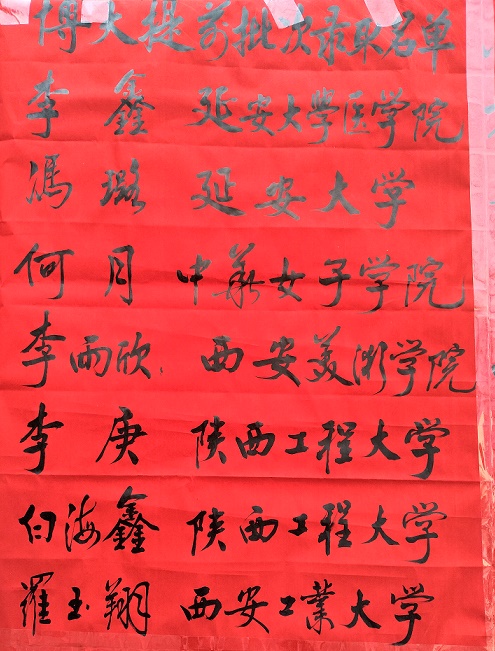 博大提前批次录取名单
李鑫 延安大學医学院
馮璐 延安大学
何月 中華女子学院
李雨欣 西安美術学院
李庚 陕西工程大学
白海鑫 陕西工程大学
羅玉翔 西安工業大学